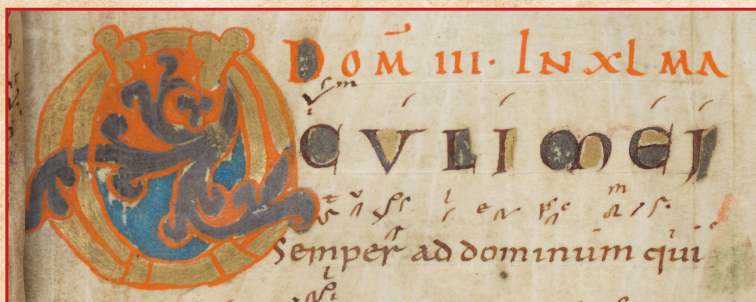 DOM̄ III · IN XLMA
OCULI MEI
Semper ad dominum qui